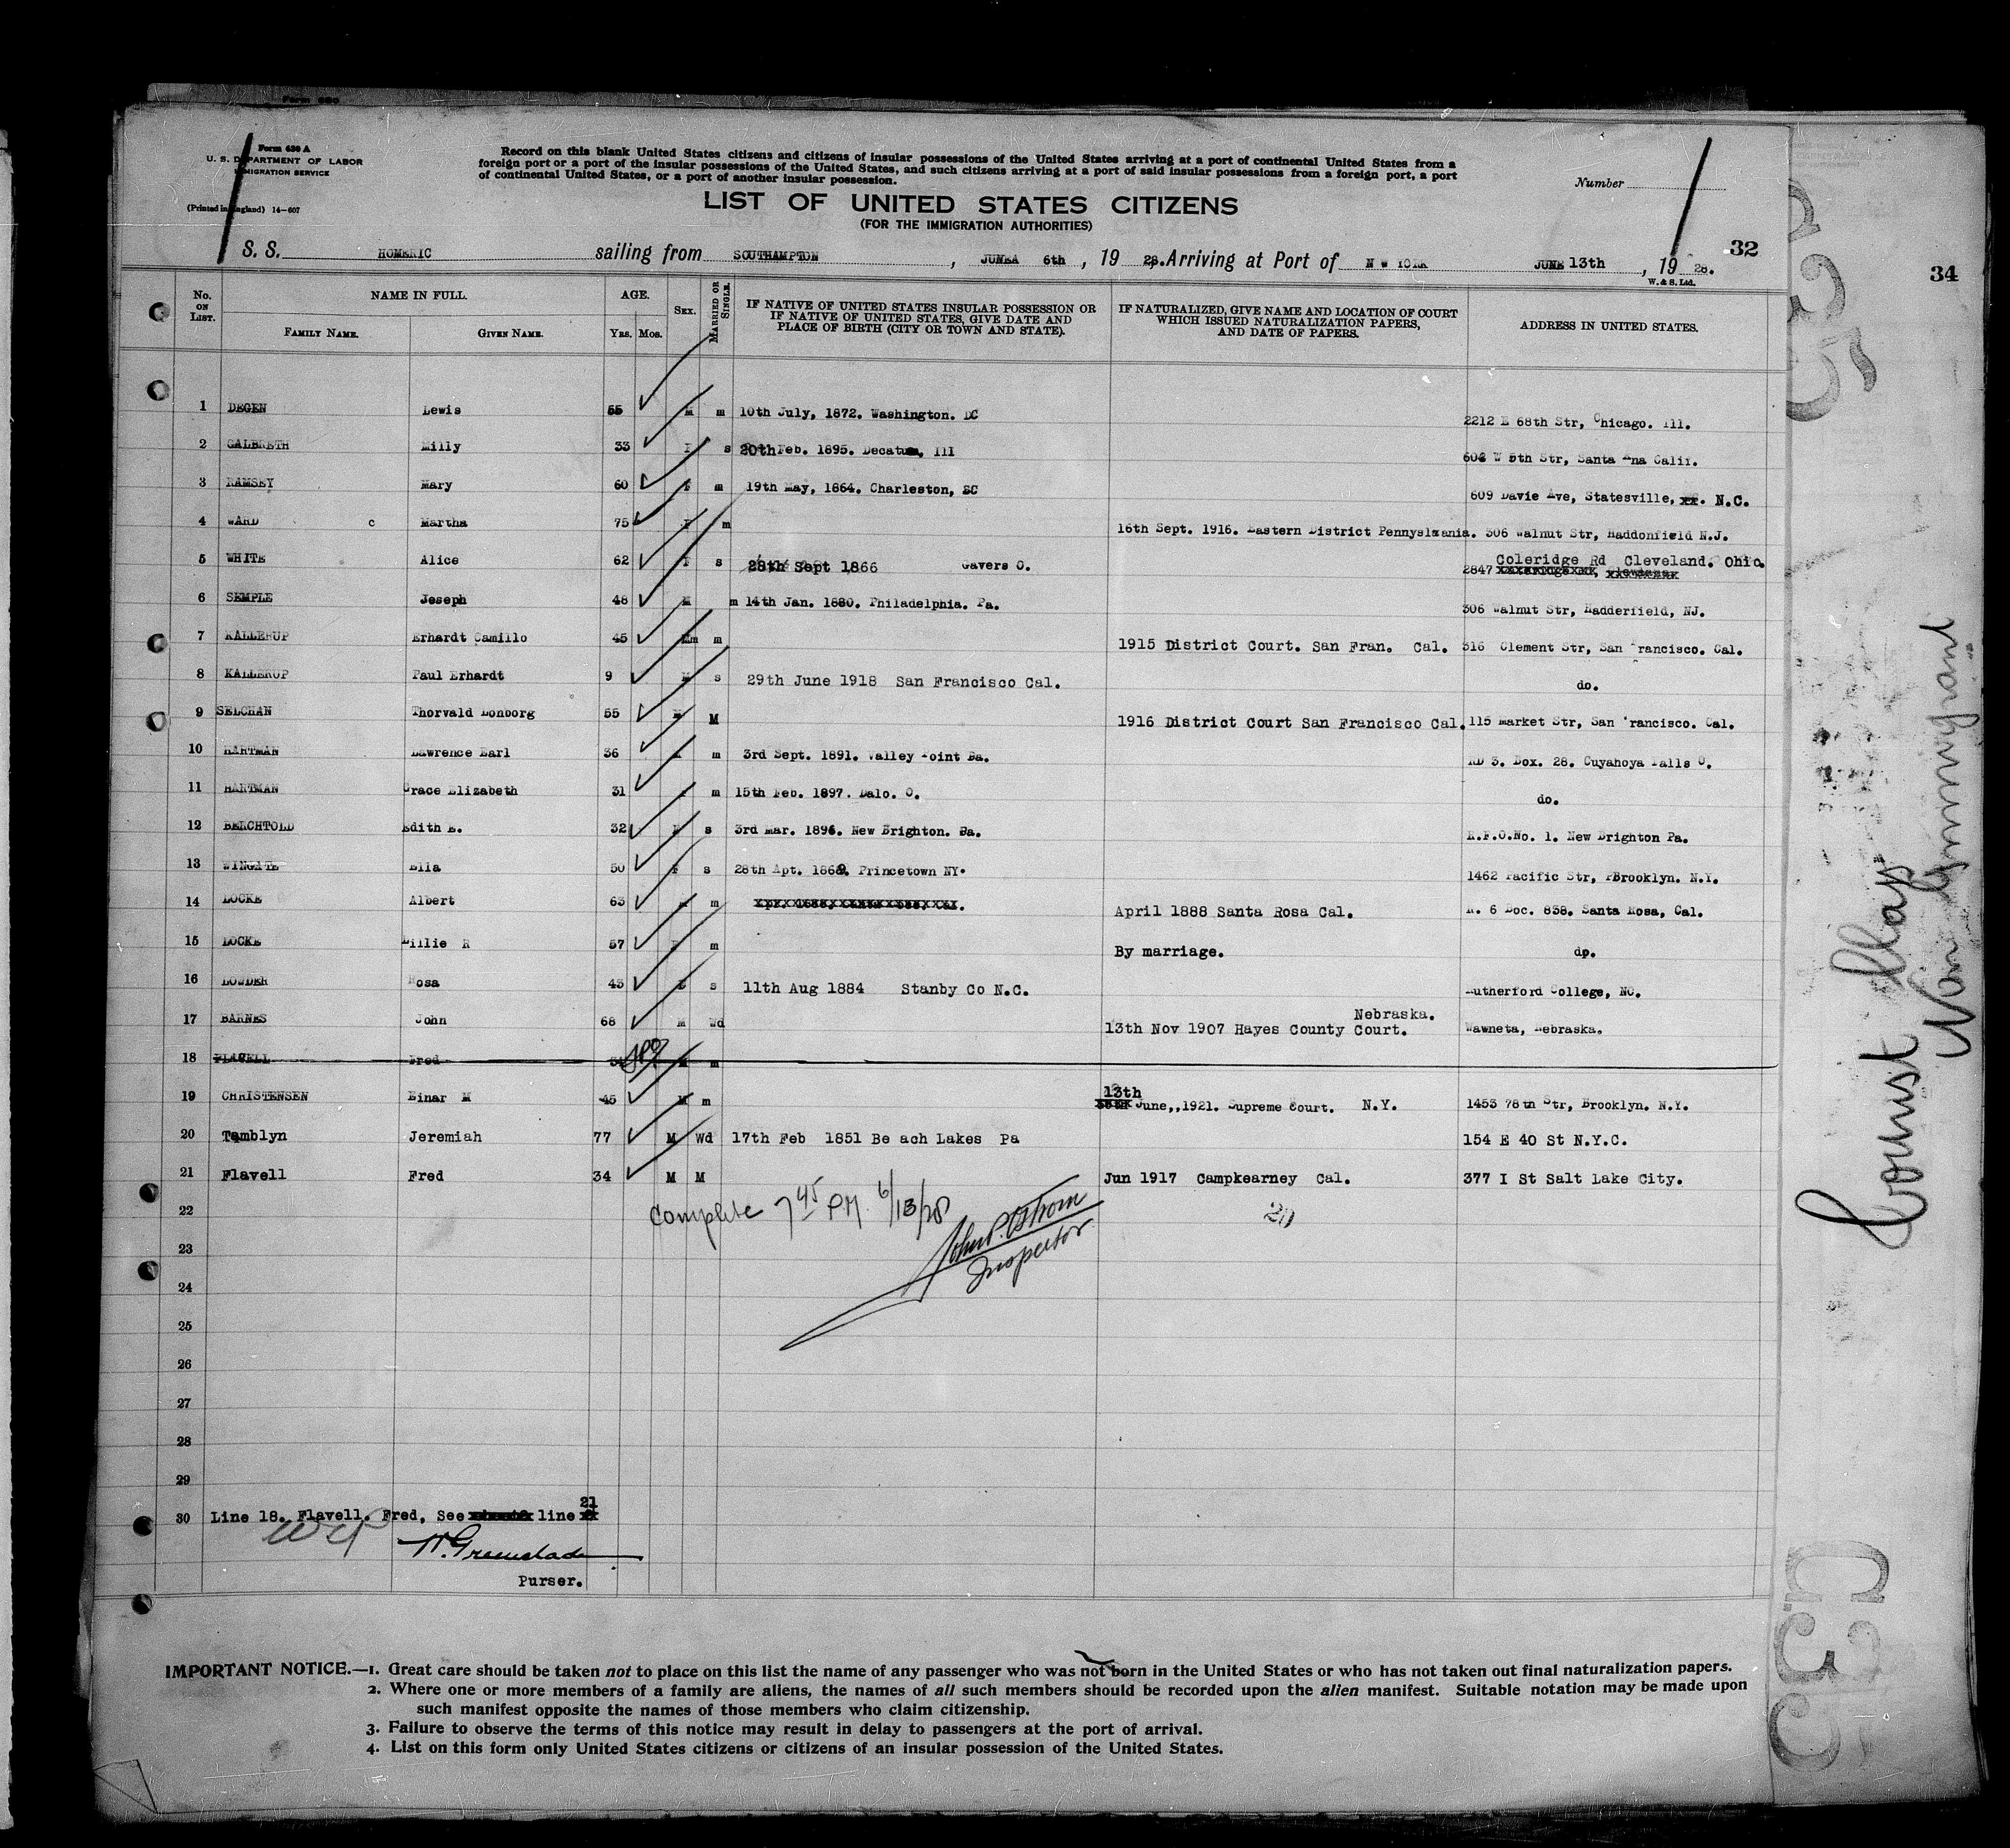 Form 630 A
U. S. DEPARTMENT OF LABOR
IMMIGRATION SERVICE
(Printed in England) 14-607
Record on this blank United States citizens and citizens of insular possessions of the United States arriving at a port of continental United States from a
foreign port or a port of the insular possessions of the United States, and such citizens arriving at a port of said insular possessions from a foreign port, a port
of continental United States, or a port of another insular possession.
Number
LIST OF UNITED STATES CITIZENS
(FOR THE IMMIGRATION AUTHORITIES)
32
34
S. S. HOMERIC sailing from SOUTHAMPTON, JUNEA 6th, 19 28. Arriving at Port of N W YORK JUNE 13th, 19 28.
W. & S. Ltd.
No. ON LIST. NAME IN FULL. AGE. SEX. MARRIED OR SINGLE. IF NATIVE OF UNITED STATES INSULAR POSSESSION OR IF NATIVE OF UNITED STATES, GIVE DATE AND PLACE OF BIRTH (CITY OR TOWN AND STATE). IF NATURALIZED, GIVE NAME AND LOCATION OF COURT WHICH ISSUED NATURALIZATION PAPERS, AND DATE OF PAPERS. ADDRESS IN UNITED STATES.
FAMILY NAME. GIVEN NAME. YRS. MOS.
1 DEGEN Lewis 55 M m 10th July, 1872. Washington. DC 2212 E 68th Str, Chicago. Ill.
2 GALBRETH Milly 33 F s 20th Feb. 1895. Decatum, Ill 602 W 5th Str, Santa Ana Calif.
3 RAMSEY Mary 60 F m 19th May, 1864. Charleston, SC 609 Davie Ave, Statesville, xx. N.C.
4 WARD c Martha 75 F m 16th Sept. 1916. Eastern District Pennyslmania. 306 Walnut Str, Haddonfield N.J.
5 WHITE Alice 62 F s 28th Sept 1866 Gavers O. 2847 Coleridge Rd Cleveland. Ohio.
6 SEMPLE Joseph 48 M m 14th Jan. 1880. Philadelphia. Pa. 306 Walnut Str, Hadderfield, NJ.
7 KALLERUP Erhardt Camillo 45 Mm m 1915 District Court. San Fran. Cal. 316 Clement Str, San Francisco. Cal.
8 KALLERUP Paul Erhardt 9 M s 29th June 1918 San Francisco Cal. do.
9 SELCHAN Thorvald Lonborg 55 M M 1916 District Court San Francisco Cal. 115 Market Str, San Francisco. Cal.
10 HARTMAN Lawrence Earl 36 m 3rd Sept. 1891. Valley Point Pa. RD 3. Box. 28. Cuyahoya Falls O.
11 HARTMAN Grace Elizabeth 31 F m 15th Feb. 1897. Dalo. O. do.
12 BERCHTOLD Edith E. 32 F s 3rd Mar. 1896. New Brighton. Pa. R.F.O.No. 1. New Brighton Pa.
13 WINGATE Ella 50 F s 28th Apt. 1869. Princetown NY. 1462 Pacific Str, PBrooklyn. N.Y.
14 LOCKE Albert 63 M m April 1888 Santa Rosa Cal. R. 6 Boc. 838. Santa Rosa, Cal.
15 LOCKE Lillie R 57 F m By marriage. dp.
16 LOWDER Rosa 43 f s 11th Aug 1884 Stanby Co N.C. Rutherford College, NC.
17 BARNES John 68 M Wd 13th Nov 1907 Hayes County Court. Nebraska. Wawneta, Nebraska.
18 FLAVELL Fred M m
19 CHRISTENSEN Einar M 45 M m 13th June,,1921. Supreme Court. N.Y. 1453 78th Str, Brooklyn. N.Y.
20 Tamblyn Jeremiah 77 M Wd 17th Feb 1851 Be ach Lakes Pa 154 E 40 St N.Y.C.
21 Flavell Fred 34 M M Jun 1917 Campkearney Cal. 377 I St Salt Lake City.
22
Complete 7 45 P.M. 6/13/28
20
John P. Ostrom
Inspector
23
24
25
26
27
28
29
30 Line 18. Flavell. Fred, See line 21
Purser.
Tourist Class
Non Immigrant
IMPORTANT NOTICE.—1. Great care should be taken not to place on this list the name of any passenger who was not born in the United States or who has not taken out final naturalization papers.
2. Where one or more members of a family are aliens, the names of all such members should be recorded upon the alien manifest. Suitable notation may be made upon
such manifest opposite the names of those members who claim citizenship.
3. Failure to observe the terms of this notice may result in delay to passengers at the port of arrival.
4. List on this form only United States citizens or citizens of an insular possession of the United States.